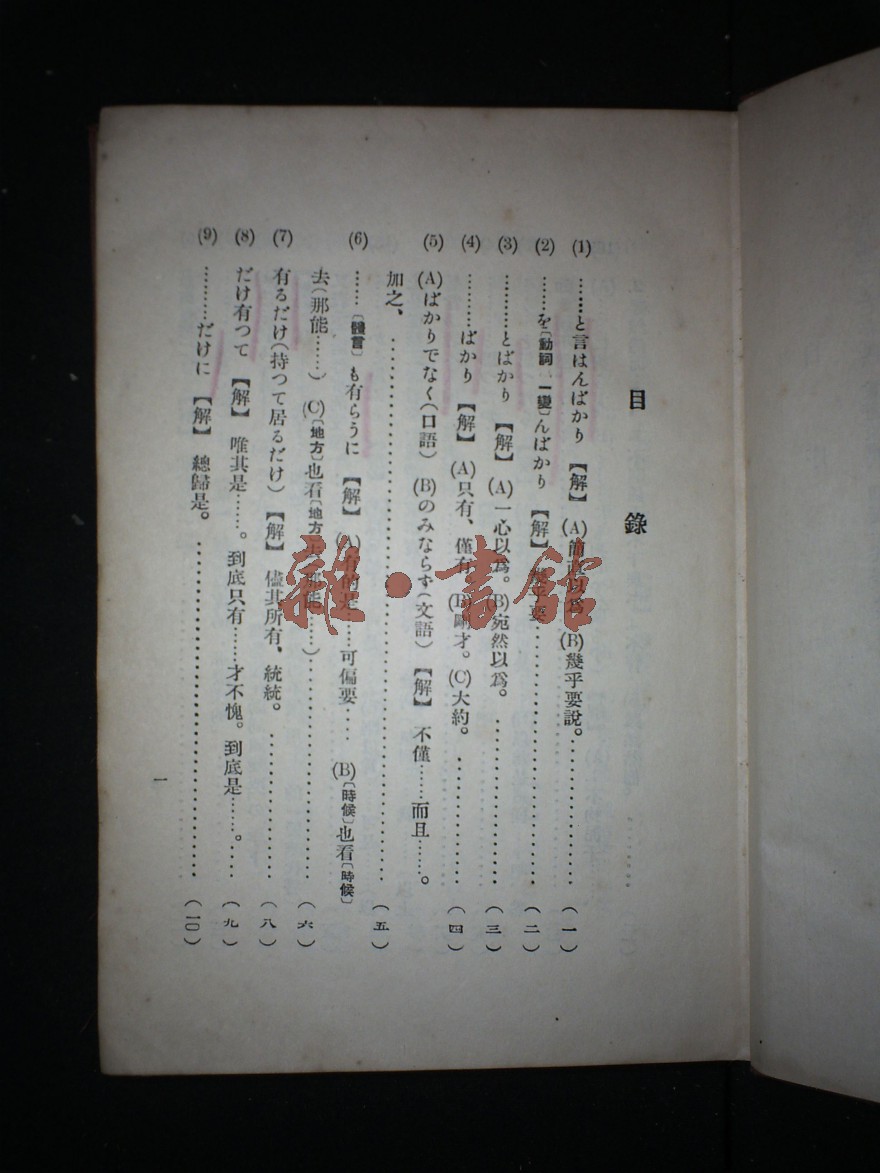 目錄
(1) ………と言はんばかり 【解】 (A)簡直以爲 (B)幾乎要說。…………(一)
(2) ………を〔動詞、一變〕んばかり 【解】 幾乎要…………(二)
(3) …………とばかり 【解】 (A)一心以爲。(B)宛然以爲。…………(三)
(4) …………ばかり 【解】 (A)只有、僅有 (B)剛才。(C)大約。…………(四)
(5) (A)ばかりでなく(口語) (B)のみならず(文語) 【解】 不僅……而且……。
加之、…………(五)
(6) ……〔體言〕も有らうに 【解】 (A)有的是……可偏要…… (B)〔時候〕也看〔時候〕
去(那能……) (C)〔地方〕也看〔地方〕去(那能……)…………(六)
(7) 有るだけ(持つて居るだけ) 【解】 儘其所有、統統。…………(八)
(8) だけ有つて 【解】 唯其是……。到底只有……才不愧。到底是……。…(九)
(9) …………だけに 【解】 總歸是。…………(一〇)
一
雜·書館